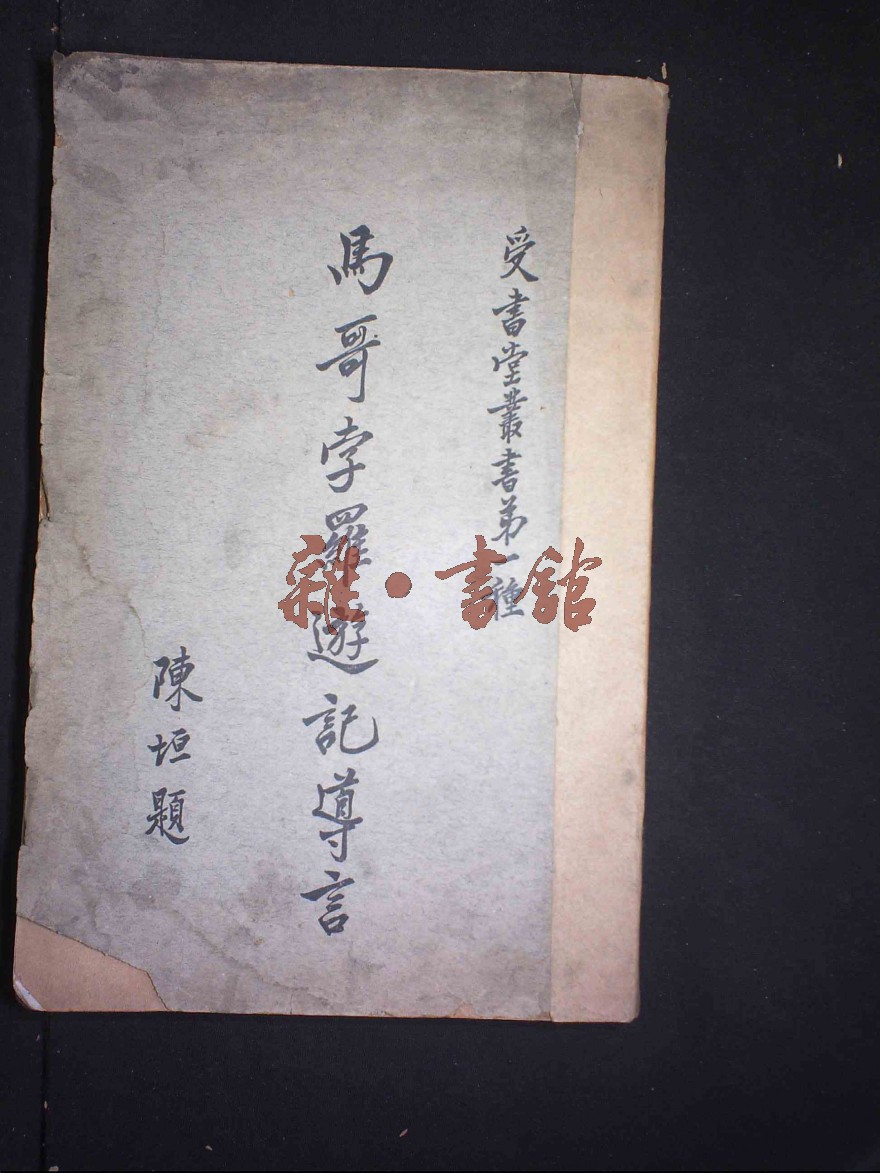 受書堂叢書第一種
馬哥孛羅遊記導言
陳垣題
雜·書館